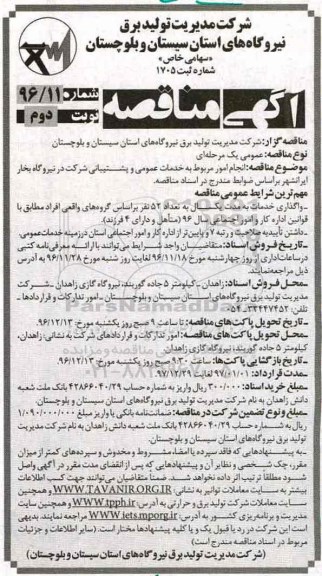 شرکت مدیریت تولید برق
نیروگاه‌های استان سیستان و بلوچستان
«سهامی خاص»
شماره ثبت ۱۷۰۵
آگهی مناقصه
شماره ۹۶/۱۱
نوبت دوم
مناقصه گزار: شرکت مدیریت تولید برق نیروگاه‌های استان سیستان و بلوچستان
نوع مناقصه: عمومی یک مرحله‌ای
موضوع مناقصه: انجام امور مربوط به خدمات عمومی و پشتیبانی شرکت در نیروگاه بخار
ایرانشهر براساس ضوابط مندرج در اسناد مناقصه.
مهم‌ترین شرایط عمومی مناقصه
ـ واگذاری خدمات به مدت یک سال به تعداد ۵۲ نفر براساس گروه‌های واقعی افراد مطابق با
قوانین اداره کار و امور اجتماعی سال ۹۶ (متأهل و دارای ۲ فرزند).
ـ داشتن تأییدیه صلاحیت و رتبه ۷ و پایین‌تر از اداره کار و امور اجتماعی استان در زمینه خدمات عمومی.
ـ تاریخ فروش اسناد: متقاضیان واجد شرایط می‌توانند با ارائه معرفی‌نامه کتبی
در ساعات اداری از روز چهارشنبه مورخ ۹۶/۱۱/۱۸ لغایت روز شنبه مورخ ۹۶/۱۱/۲۸ به آدرس
ذیل مراجعه نمایند.
ـ محل فروش اسناد: زاهدان ـ کیلومتر ۵ جاده گوربند، نیروگاه گازی زاهدان ـ شرکت
مدیریت تولید برق نیروگاه‌های استان سیستان و بلوچستان ـ امور تدارکات و قراردادها ـ
تلفن:
ـ تاریخ تحویل پاکت‌های مناقصه: تا ساعت ۹ صبح روز یکشنبه مورخ ۹۶/۱۲/۱۳.
ـ محل تحویل پاکت‌های مناقصه: امور تدارکات و قراردادهای شرکت به نشانی: زاهدان،
کیلومتر ۵ جاده گوربند، نیروگاه گازی زاهدان.
ـ تاریخ بازگشایی پاکت‌ها: ساعت ۹:۳۰ صبح روز یکشنبه مورخ ۹۶/۱۲/۱۳
ـ مدت قرارداد: ۹۷/۰۱/۰۱ لغایت ۹۷/۱۲/۲۹
ـ مبلغ خرید اسناد: ۳۰۰/۰۰۰ ریال واریز به شماره حساب ۴۲۸۶۶۰۴۰/۲۹ بانک ملت شعبه
دانش زاهدان به نام شرکت مدیریت تولید برق نیروگاه‌های استان سیستان و بلوچستان.
ـ مبلغ و نوع تضمین شرکت در مناقصه: ضمانت‌نامه بانکی یا واریز مبلغ ۱/۰۹۰/۰۰۰/۰۰۰
ریال به شماره حساب ۴۲۸۶۶۰۴۰/۲۹ بانک ملت شعبه دانش زاهدان به نام شرکت مدیریت
تولید برق نیروگاه‌های استان سیستان و بلوچستان.
ـ به پیشنهادهایی که فاقد سپرده یا امضاء، مشروط و مخدوش و سپرده‌های کمتر از میزان
مقرر، چک شخصی و نظایر آن و پیشنهادهایی که پس از انقضای مدت مقرر در آگهی واصل
شود مطلقا ترتیب اثر داده نخواهد شد. ضمنا متقاضیان می‌توانند جهت کسب اطلاعات
بیشتر به سایت معاملات توانیر به نشانی: WWW.TAVANIR.ORG.IR و همچنین
سایت معاملات شرکت تولید برق و حرارتی به آدرس: www.tpph.ir و همچنین سایت
مدیریت و برنامه‌ریزی کشور به آدرس: www.iets.mporg.ir مراجعه نمایند. بدیهی
است این شرکت در رد یا قبول یک و یا کلیه پیشنهادها مختار است. (سایر اطلاعات و جزئیات
مربوط در اسناد مناقصه مندرج است)
(شرکت مدیریت تولید برق نیروگاه‌های استان سیستان و بلوچستان)